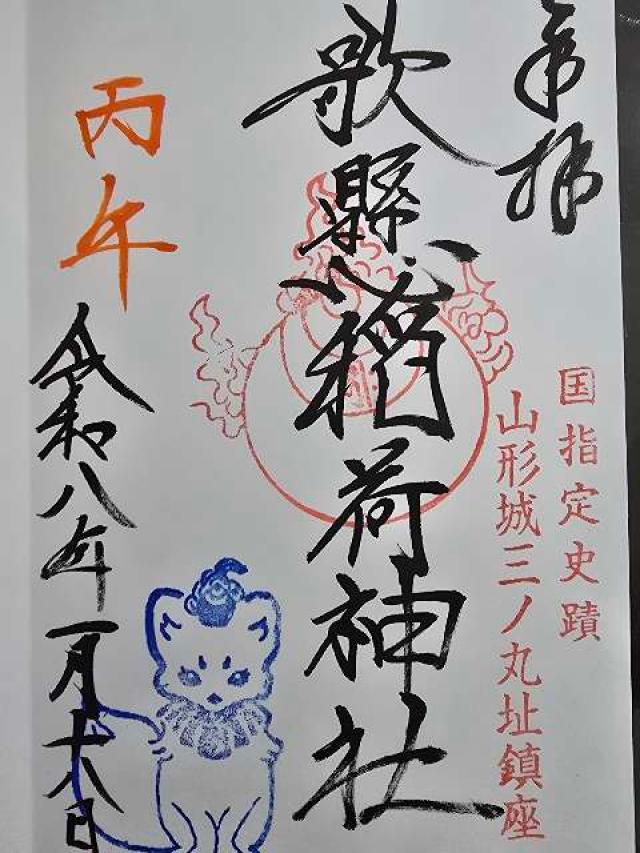 奉拝
国指定史蹟
山形城三ノ丸址鎮座
歌懸稲荷神社
丙午
令和八年一月十八日